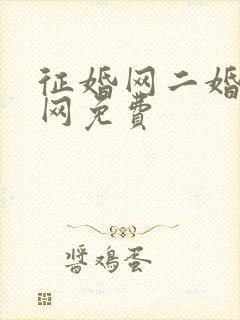 征婚网二婚
网免费
酱鸡蛋